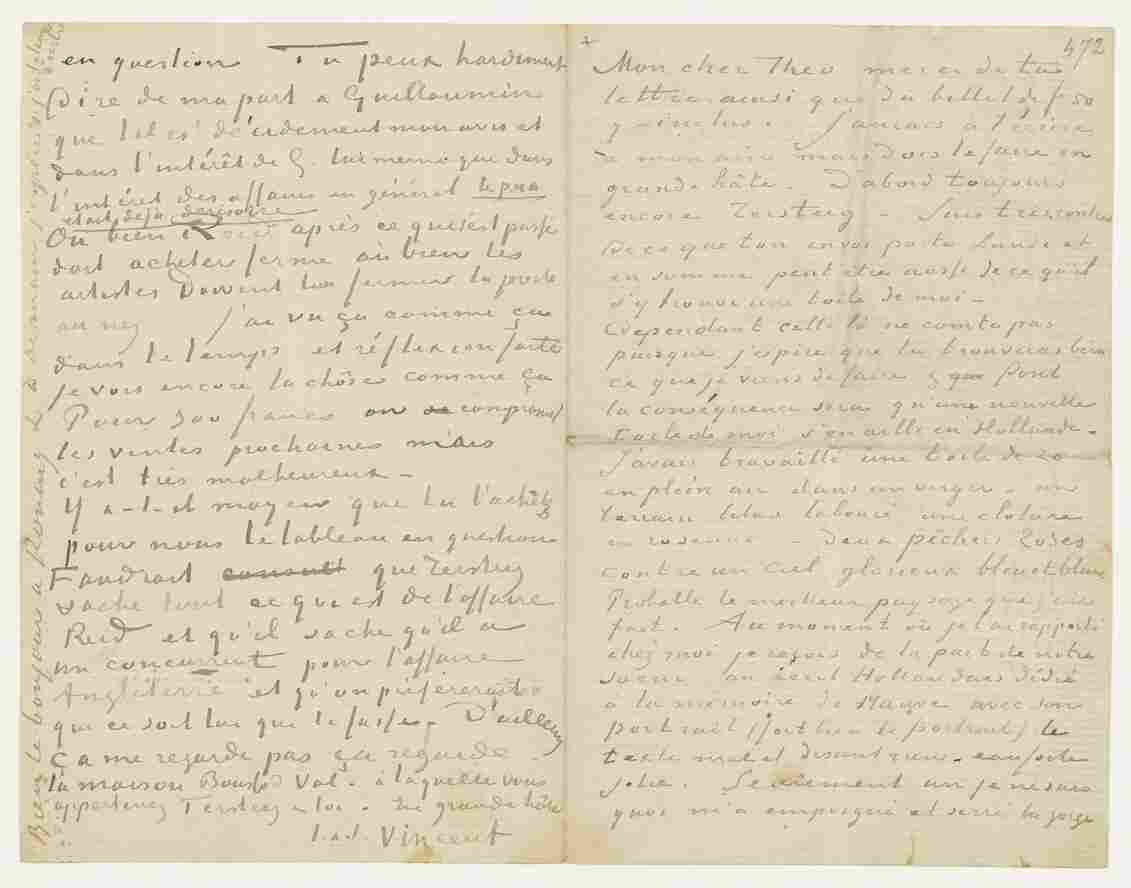 en question Tu peux hardiment
Dire de ma part a Guillaumin
que tel est décidement mon avis et
dans l'intérêt de G. lui meme que dans
l'intéret des affaires en général le prix
était déjà dérisoire
Ou bien Reid après ce qui s'est passé
doit acheter ferme où bien les
artistes Doivent lui fermer la porte
au nez J'ai vu ça comme ca
dans le temps et réflexion faite
Je vois encore la chôse comme ça
Pour 300 francs on se compromet
les ventes prochaines mais
c'est très malheureux -
Y a-t-il moyen que tu l'achètes
pour nous le tableau en question
Faudrait que Tersteeg
sache tout ce qui est de l'affaire
Reid et qu'il sache qu'il a
un concurrent pour l'affaire
Angleterre et qu'on préférerait
que ce soit lui qui le fasse. D'ailleurs
ça me regarde pas ça regarde
la maison Boussod Val. à laquelle vous
appartenez Tersteeg & toi. En grande hâte
t. à t. Vincent
Bien le bonjour à Koning & à demain j'espère
472
Mon cher Theo merci de ta
lettre ainsi que du billet de f 50
y inclus. J'aurais à t'écrire
à mon aise mais dois le faire en
grande hâte. D'abord toujours
encore Tersteeg - Suis tres content
de ce que ton envoi parte Lundi et
en somme peut etre aussi de ce qu'il
s'y trouve une toile de moi -
Cependant celle là ne compte pas
puisque j'espère que tu trouveras bien
ce que je viens de faire & dont
la conséquence sera qu'une nouvelle
toile de moi s'en aille en Hollande -
J'avais travaillé une toile de 20
en plein air dans un verger - un
terrain lilas labouré une cloture
en roseaux - Deux pêchers roses
contre un ciel glorieux bleu et blanc
Probablt le meilleur paysage que j'aie
fait. Au moment où je l'ai rapporté
chez moi je reçois de la part de notre
soeur un écrit Hollandais dédié
à la mémoire de Mauve avec son
portrait (fort bien le portrait) le
texte mal et disant rien - eauforte
jolie. Seulement un je ne sais
quoi m'a empoigné et serré la gorge